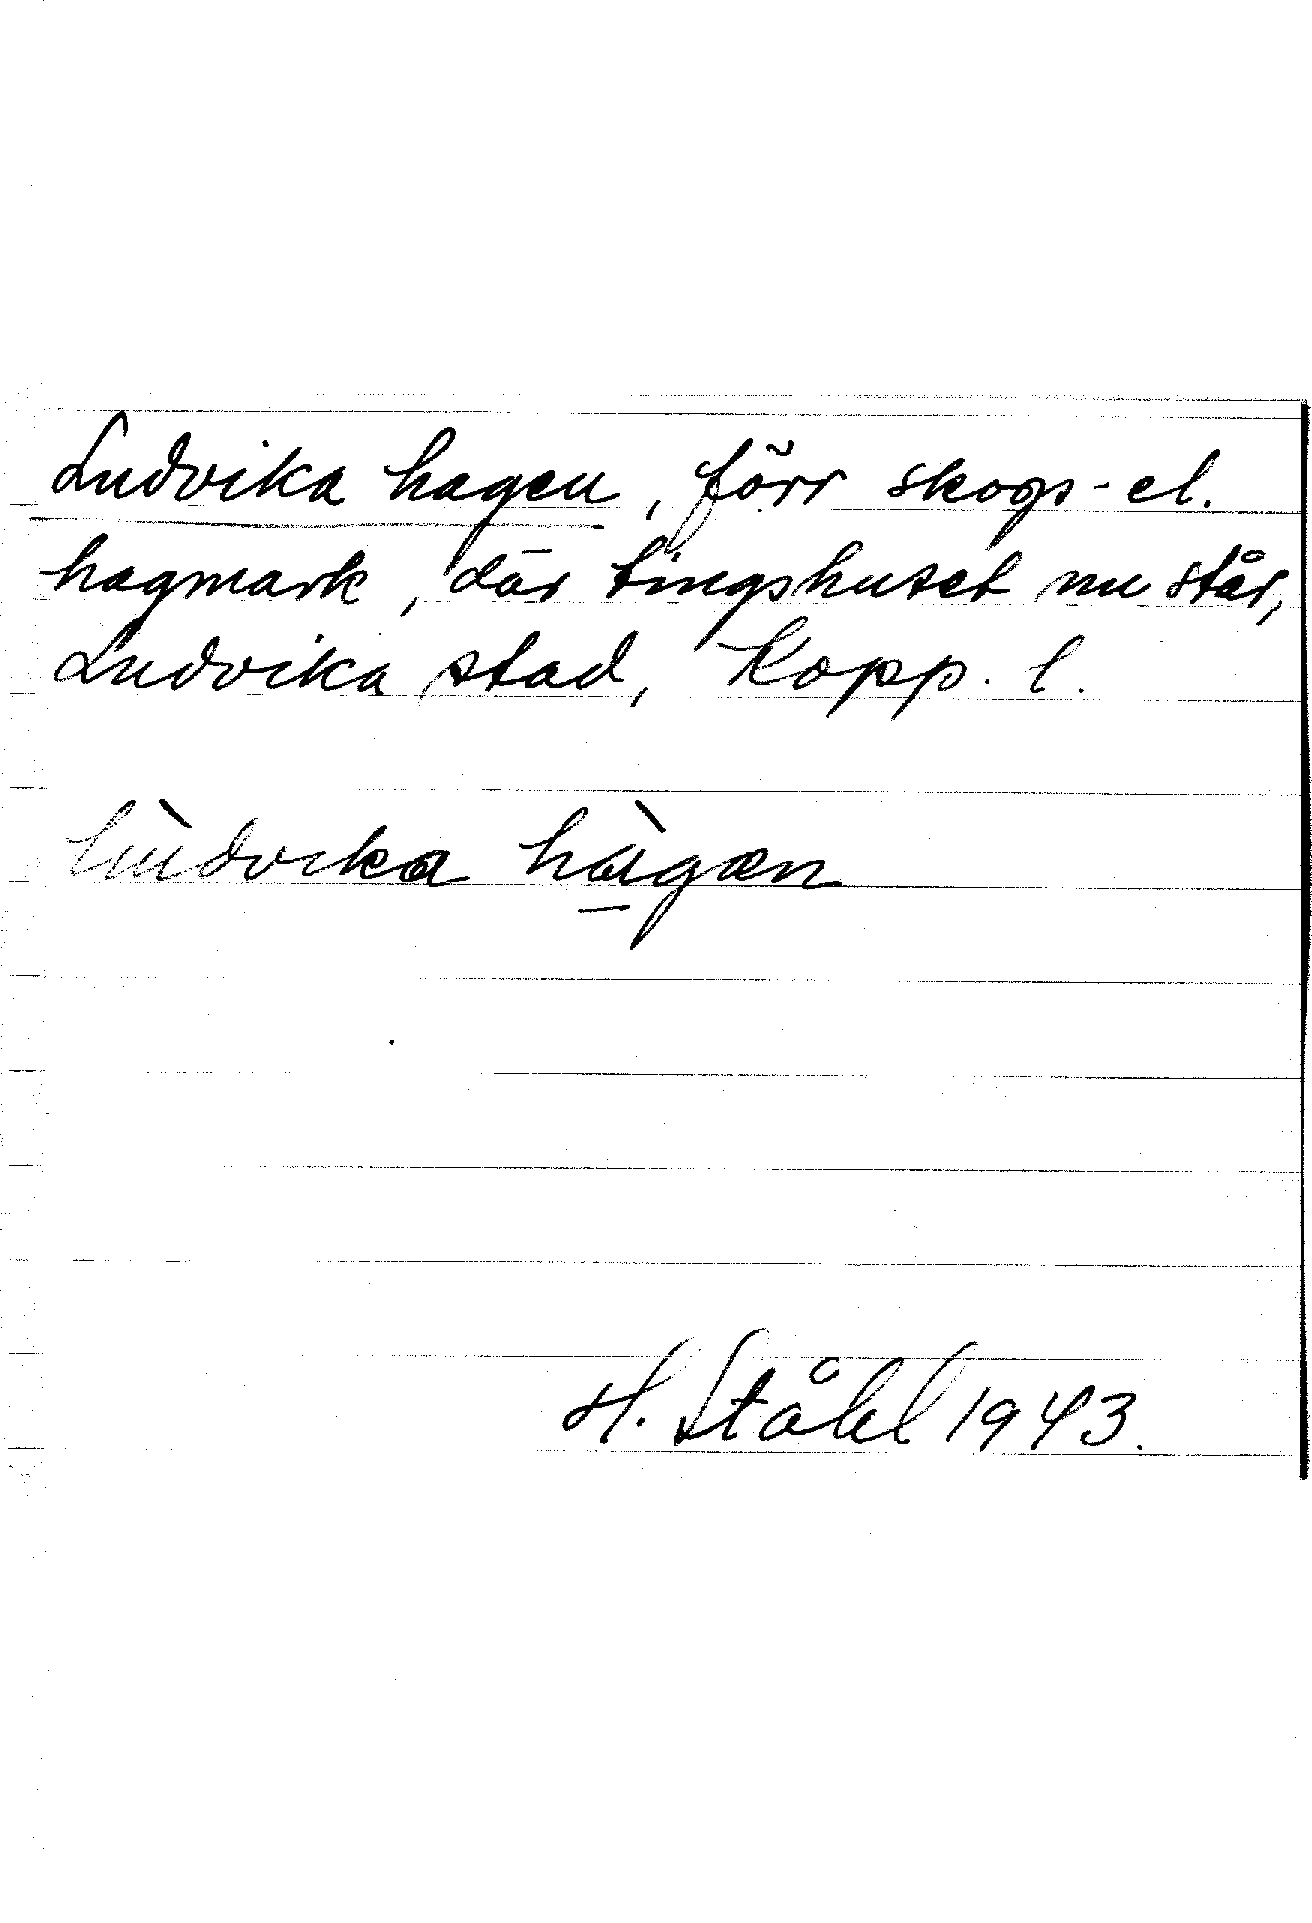 Ludvika hagen, förr skogs- el.
hagmark, där tingshuset nu står,
Ludvika stad, Kopp. l.
lùdvika hà̱gæn
H. Ståhl 1943.